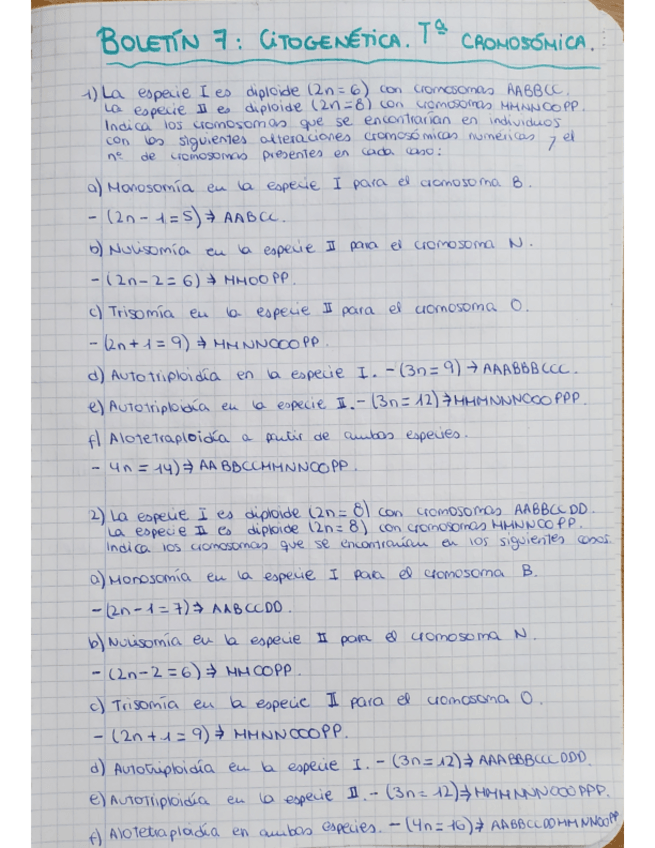 BOLETÍN 7: CITOGENÉTICA. Tª CROMOSÓMICA.
1) La especie I es diploide (2n=6) con cromosomas AABBCC.
La especie II es diploide (2n=8) con cromosomas MMNNOOPP.
Indica los cromosomas que se encontrarían en individuos
con las siguientes alteraciones cromosómicas numéricas y el
nº de cromosomas presentes en cada caso:
a) Monosomía en la especie I para el cromosoma B.
- (2n-1=5) ⇒ AABCC.
b) Nulisomía en la especie II para el cromosoma N.
- (2n-2=6) ⇒ MMOOPP.
c) Trisomía en la especie II para el cromosoma O.
- (2n+1=9) ⇒ MMNNOOOPP.
d) Autotriploidía en la especie I. - (3n=9) → AAABBBCCC.
e) Autotriploidía en la especie II. - (3n=12) ⇒ MMMNNNOOOPPP.
f) Alotetraploidía a partir de ambas especies.
- 4n=14) ⇒ AABBCCMMNNOOPP.
2) La especie I es diploide (2n=8) con cromosomas AABBCCDD.
La especie II es diploide (2n=8) con cromosomas MMNNOOPP.
Indica los cromosomas que se encontrarían en los siguientes casos.
a) Monosomía en la especie I para el cromosoma B.
- (2n-1=7) ⇒ AABCCDD.
b) Nulisomía en la especie II para el cromosoma N.
- (2n-2=6) ⇒ MMOOPP.
c) Trisomía en la especie II para el cromosoma O.
- (2n+1=9) ⇒ MMNNOOOPP.
d) Autotriploidía en la especie I. - (3n=12) ⇒ AAABBBCCCDDD.
e) Autotriploidía en la especie II. - (3n=12) ⇒ MMMNNNOOOPPP.
f) Alotetraploidía en ambas especies. - (4n=16) ⇒ AABBCCDDMMNNOOPP